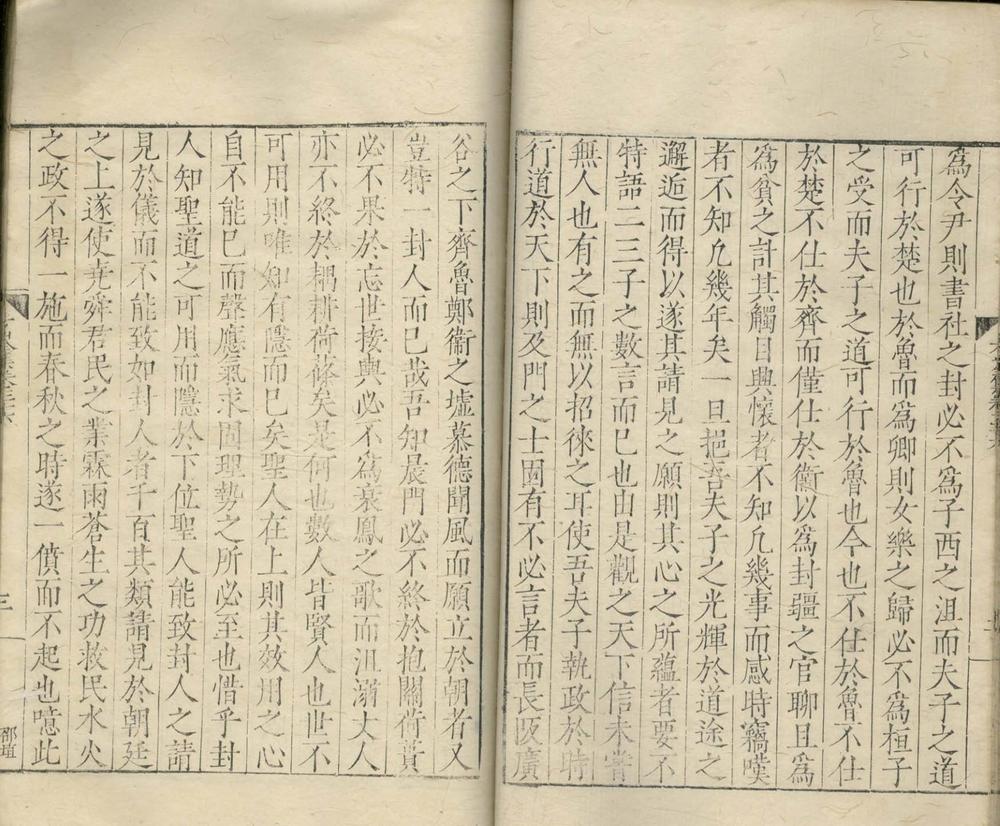 爲令尹則書社之封必不爲子西之沮而夫子之道
可行於楚也於魯而爲卿則女樂之歸必不爲桓子
之受而夫子之道可行於魯也今也不仕於魯不仕
於楚不仕於齊而僅仕於衞以爲封疆之官聊且爲
爲貧之計其觸目興懷者不知凡幾事而感時竊嘆
者不知凡幾年矣一旦挹吾夫子之光輝於道途之
邂逅而得以遂其請見之願則其心之所蘊者要不
特語二三子之數言而已也由是觀之天下信未嘗
無人也有之而無以招徠之耳使吾夫子執政於時
行道於天下則及門之士固有不必言者而長阪廣
谷之下齊魯鄭衞之墟慕德聞風而願立於朝者又
豈特一封人而已哉吾知晨門必不終於抱關荷蕢
必不果於忘世接輿必不爲衰鳳之歌而沮溺丈人
亦不終於耦耕荷蓧矣是何也數人皆賢人也世不
可用則唯知有隱而已矣聖人在上則其效用之心
自不能已而聲應氣求固理勢之所必至也惜乎封
人知聖道之可用而隱於下位聖人能致封人之請
見於儀而不能致如封人者千百其類請見於朝廷
之上遂使堯舜君民之業霖雨蒼生之功救民水火
之政不得一施而春秋之時遂一僨而不起也噫此
三